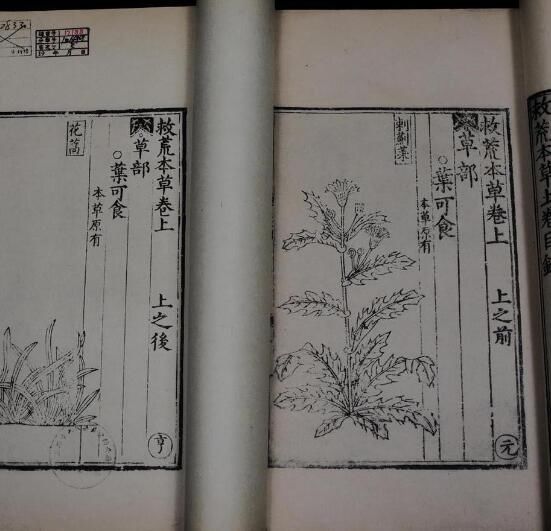 救荒本草上卷目録
救荒本草卷上　上之前
草部
葉可食
本草原有
刺薊菜
元
救荒本草卷上　上之後
草部
葉可食
本草原有
花蒿
亨